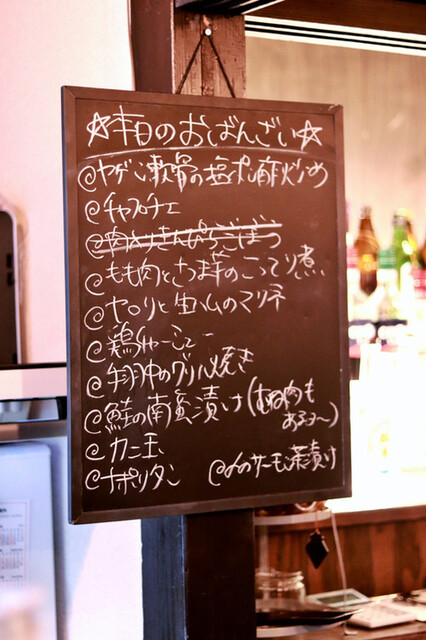 ☆本日のおばんざい☆
@ヤゲン軟骨の塩ポン酢炒め
@チャプチェ
@肉入りきんぴらごぼう
@もも肉とさつま芋のこってり煮
@ヤロリと生ハムのマリネ
@鶏チャーシュー
@手羽中のグリル焼き
@鮭の南蛮漬け(むね肉も
あるヨ〜)
@カニ玉
@ナポリタン @〆のサーモン茶漬け